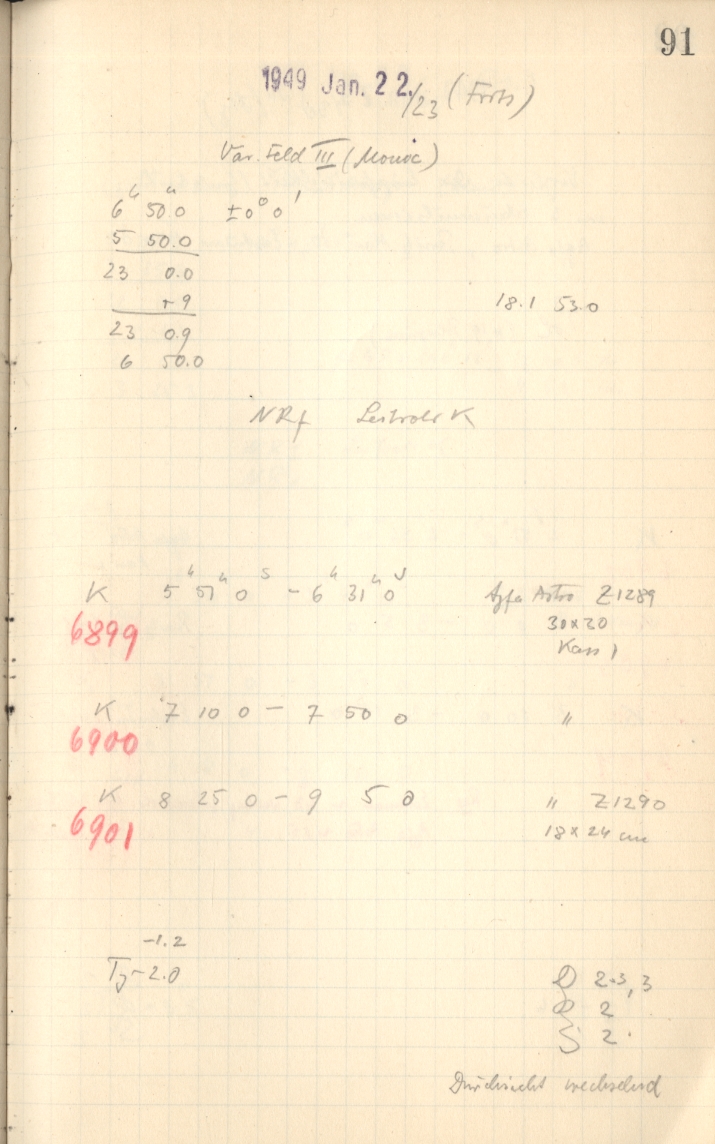 91
1949 Jan. 22./23 (Forts)
Var. Feld III (Monoc)
6h 50.0m ±0° 0'
5 50.0
23 0.0
+ 9
23 0.9
6 50.0
18.1 53.0
NRf Leitrohr K
K 5h 51m 0s - 6h 31m 0s Agfa Astro Z1289
6899 30x30
Kass 1
K 7 10 0 - 7 50 0 "
6900
K 8 25 0 - 9 5 0 " Z1290
6901 18x24 cm
-1.2
-2.0
D 2-3, 3
R 2
S 2
Durchsicht wechselnd